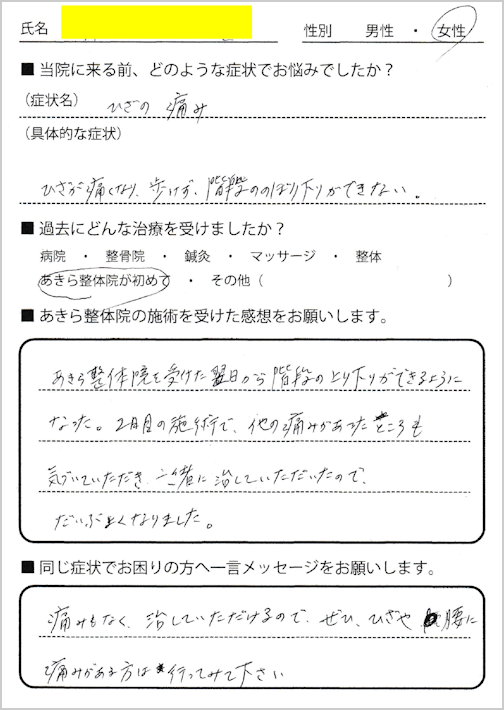 氏名 性別 男性 ・ 女性
■ 当院に来る前、どのような症状でお悩みでしたか？
（症状名） ひざの 痛み
（具体的な症状）
ひざが痛くなり、歩けず、階段ののぼり下りができない。
■ 過去にどんな治療を受けましたか？
病院 ・ 整骨院 ・ 鍼灸 ・ マッサージ ・ 整体
あきら整体院が初めて ・ その他（ ）
■ あきら整体院の施術を受けた感想をお願いします。
あきら整体院を受けた翌日から階段の上り下りができるように
なった。2日目の施術で、他の痛みがあったところも
気づいていただき、一緒に治していただいたので、
だいぶよくなりました。
■ 同じ症状でお困りの方へ一言メッセージをお願いします。
痛みもなく、治していただけるので、ぜひ、ひざや 腰に
痛みがある方は 行ってみて下さい